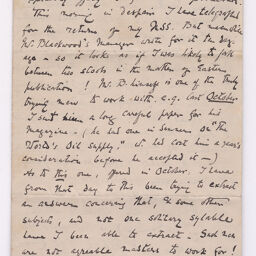 This morning in despair I have telegraphed
for the return of my MSS. But meanwhile
Mr Blackwood's Manager wrote for it ten days
ago – so it looks as if I was likely to fall
between two stools in the matter of Eastern
publication! Mr B. himself is one of the truly
trying men to work with. e.g. last October
I sent him a long careful paper for his
Magazine. (he had one in Summer on "The
World's Oil Supply." It had cost him a year's
consideration before he accepted it –)
As to this one, offered in October. I have
from that day to this been trying to extract
an answer concerning that, & some other
subjects, and not one solitary syllable
have I been able to extract. Such men
are not agreeable masters to work for!